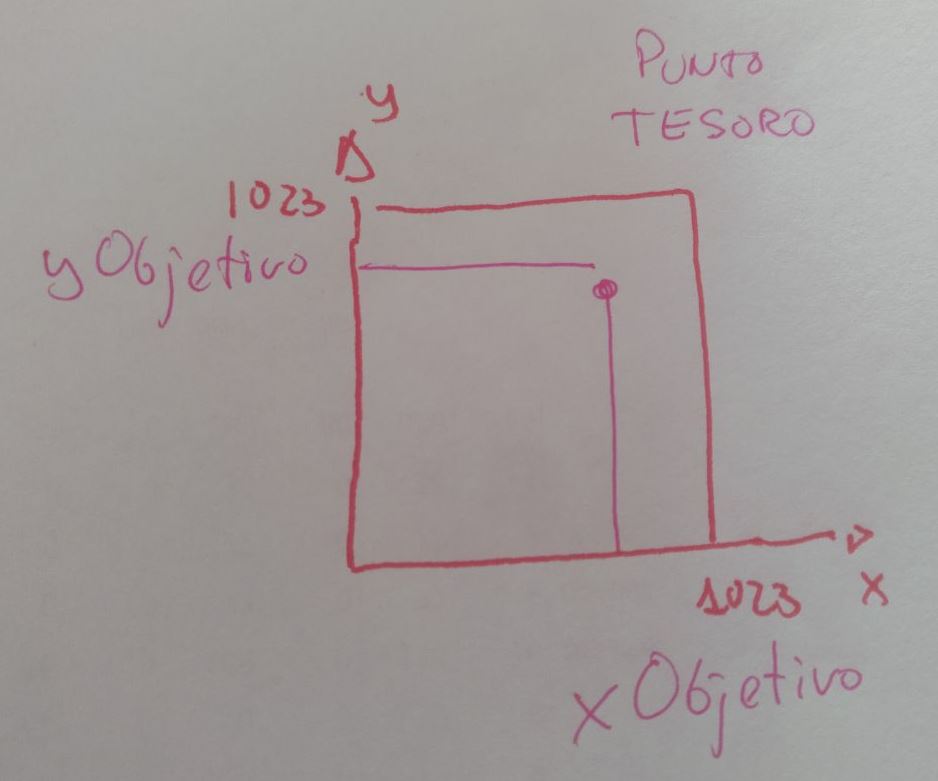 PUNTO
TESORO
y
1023
y Objetivo
1023
x
x Objetivo